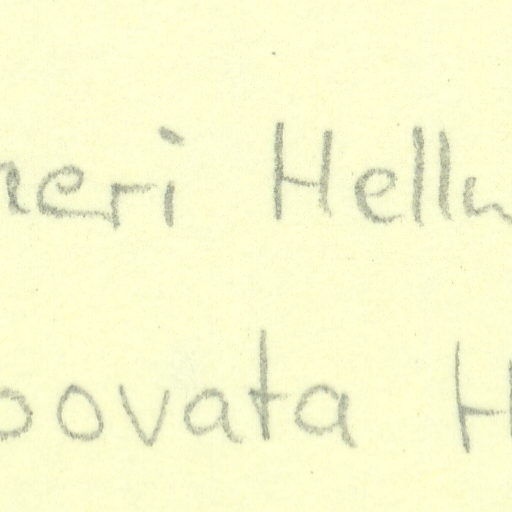 neri Hellw
oovata H